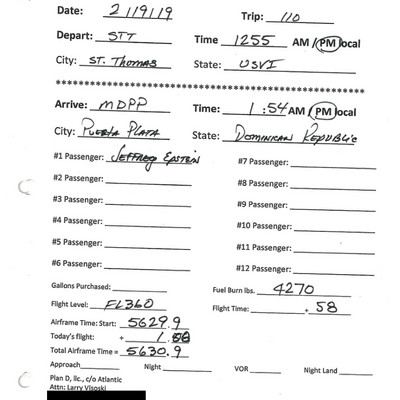 Date: 2/19/19 Trip: 110
Depart: STT Time 1255 AM/PM local
City: ST. THOMAS State: USVI
Arrive: MDPP Time: 1:54 AM/PM local
City: PUERTA PLATA State: DOMINICAN REPUBLIC
#1 Passenger: JEFFREY EPSTEIN #7 Passenger:
#2 Passenger: #8 Passenger:
#3 Passenger: #9 Passenger:
#4 Passenger: #10 Passenger:
#5 Passenger: #11 Passenger:
#6 Passenger: #12 Passenger:
Gallons Purchased: Fuel Burn lbs. 4270
Flight Level: FL360 Flight Time: . 58
Airframe Time: Start: 5629.9
Today's flight: + 1.
Total Airframe Time = 5630.9
Approach Night VOR Night Land
Plan D, llc, c/o Atlantic
Attn: Larry Visoski